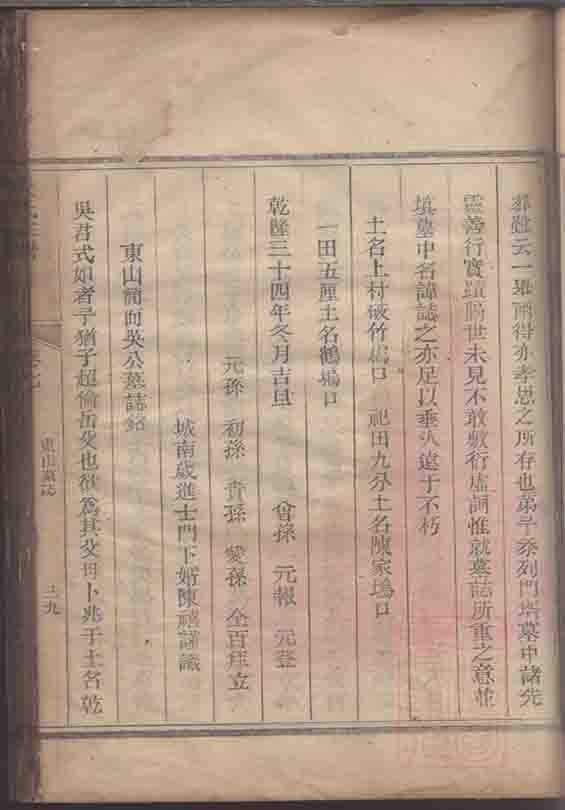 葬雖云一舉兩得亦孝思之所存也第予忝列門壻墓中諸先
靈善行實蹟膓世未見不敢敷衍虛詞惟就墓誌所重之意並
填墓中名諱誌之亦足以垂久遠于不朽
土名上村破竹塢口 祀田九分土名陳家塢口
一田五厘土名鶴塢口
乾隆三十四年冬月吉旦 曾孫 元報 元登
元孫 初孫 貴孫 愛孫 仝百拜立
城南歲進士門下婿陳禧謹識
東山簡而吳公墓誌銘
吳君式如者予猶子超倫岳父也欲為其父母卜兆于土名乾
東山墓誌
三九